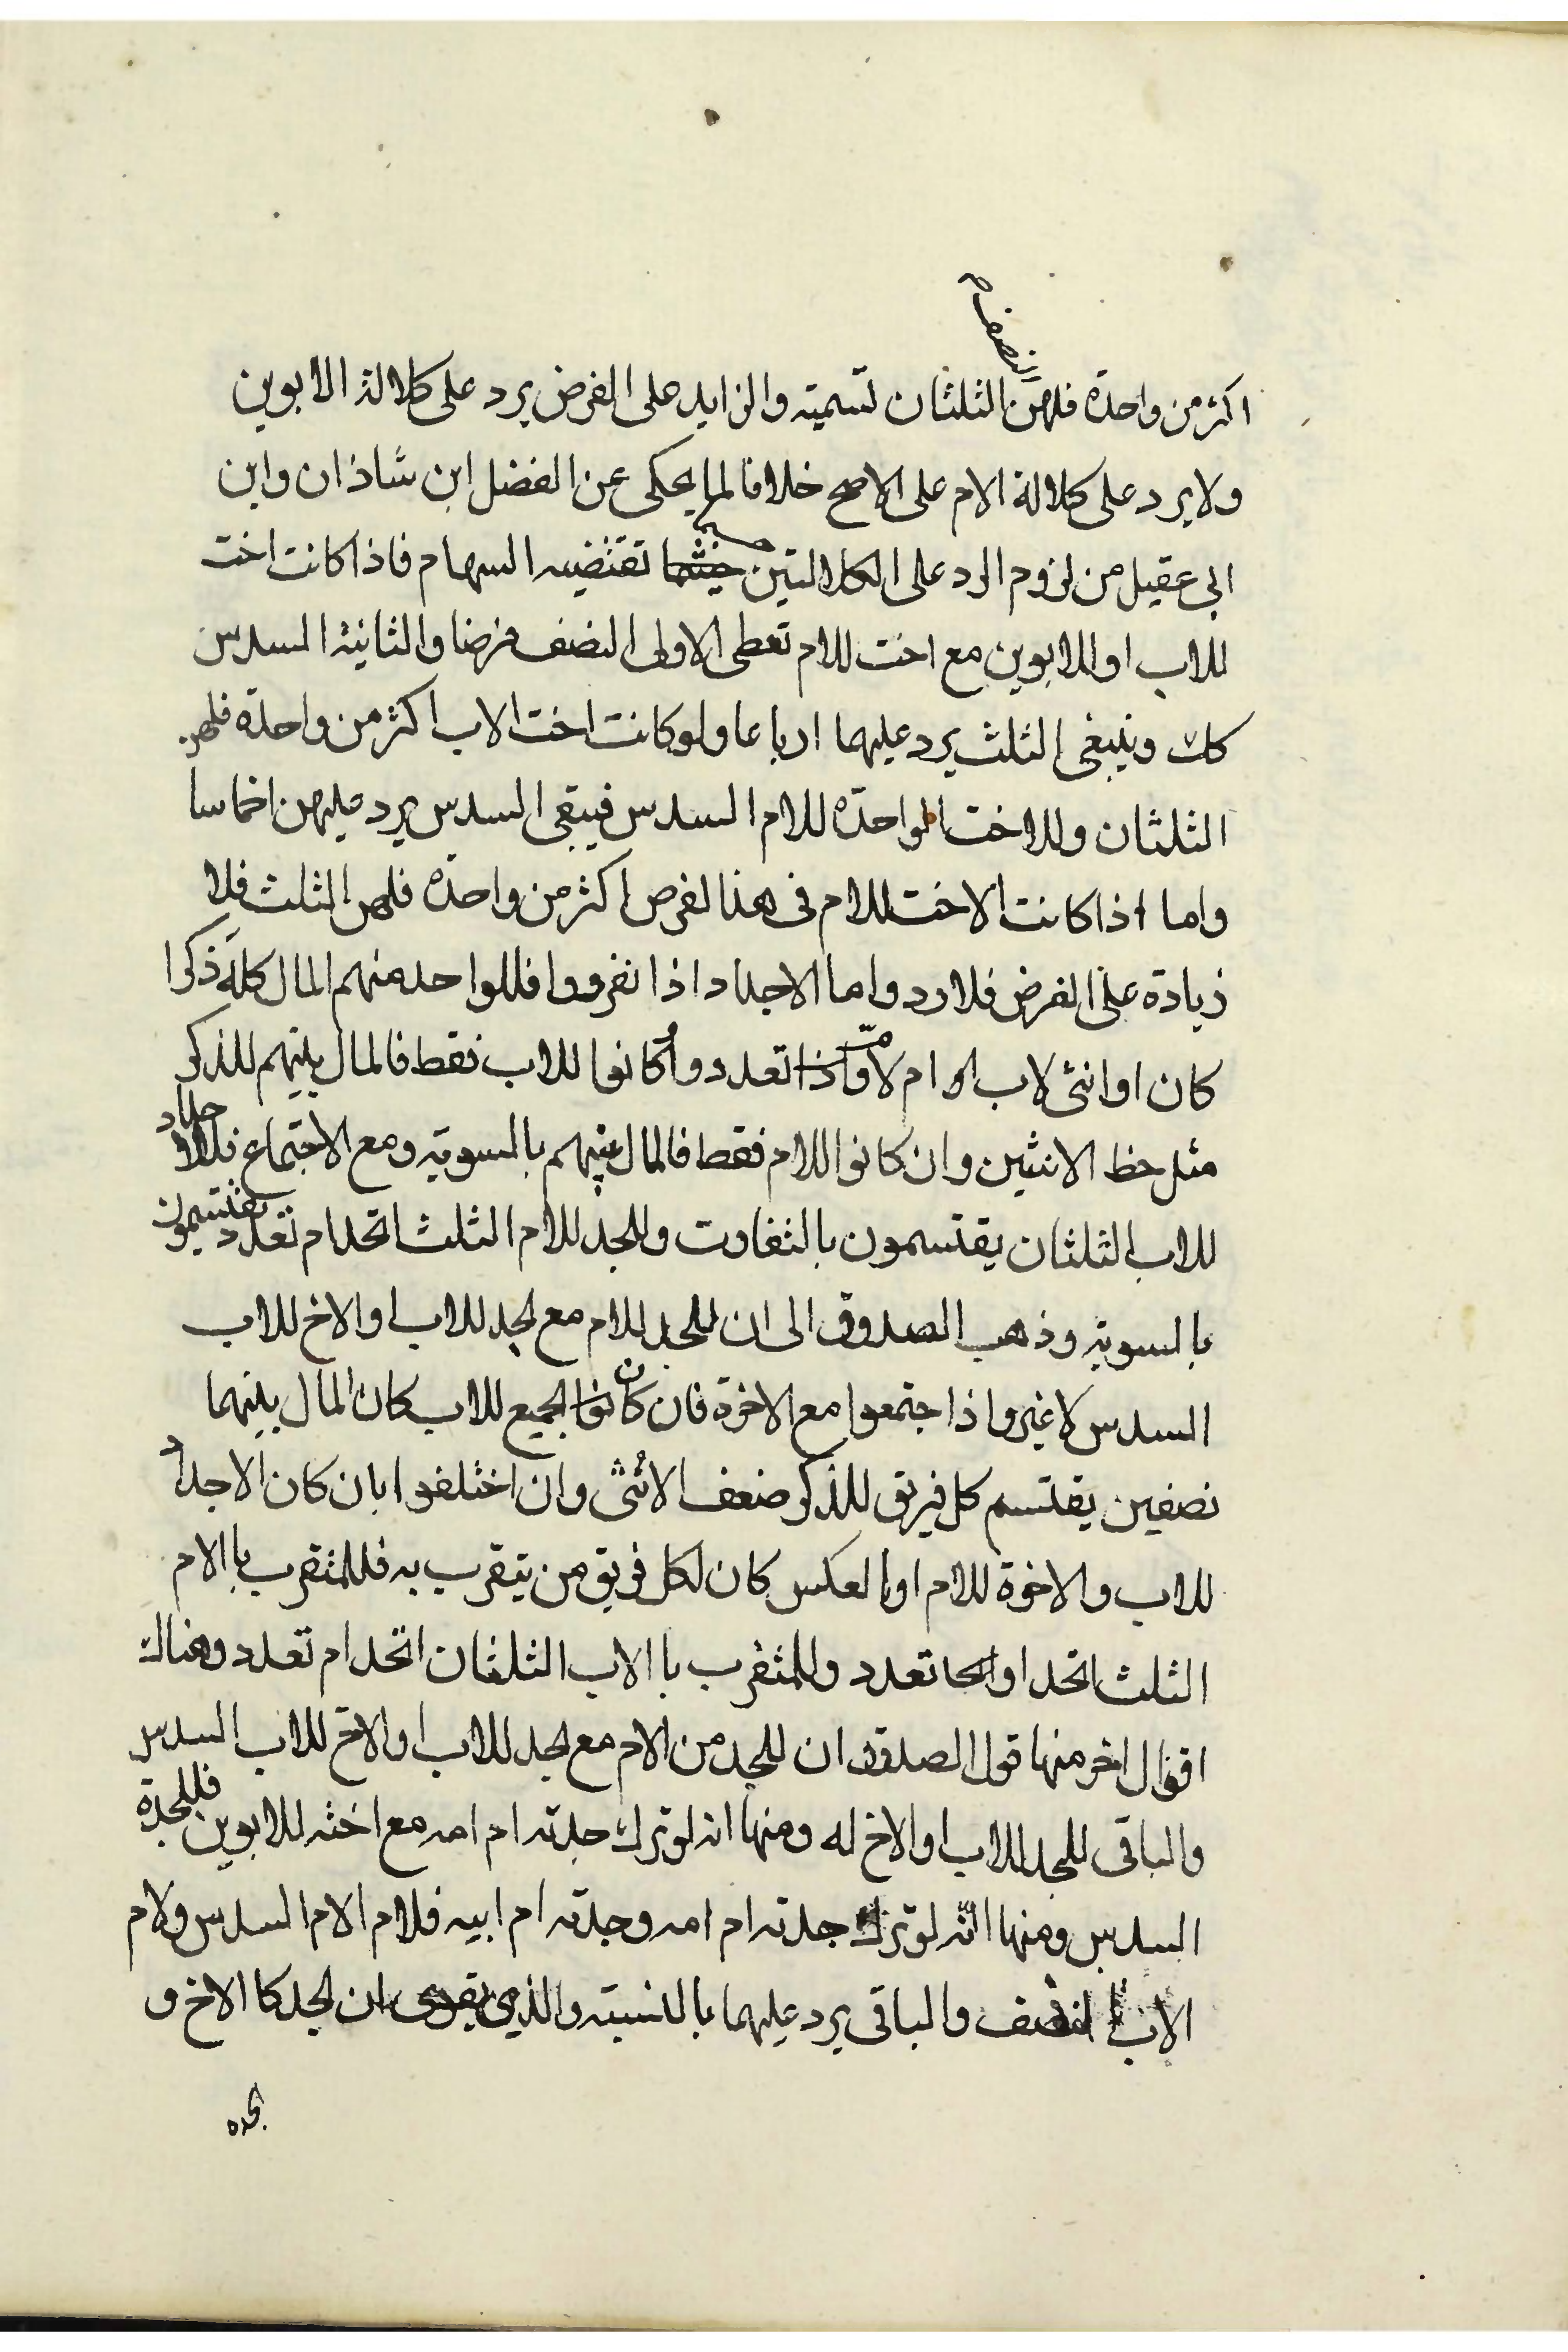 النصف
اكثر من واحدة فلهن الثلثان تسمية والزايد على الفرض يرد على كلالة الابوين
ولا يرد على كلالة الام على الاصح خلافا لما يحكى عن الفضل ابن شاذان وابن
ابى عقيل من لزوم الرد على الكلالتين تقتضيه السهام فاذا كانت اخت
للاب او للابوين مع اخت للام تعطى الاولى النصف فرضا والثانية السدس
كك وينبغى الثلث يرد عليهما ارباعا ولو كانت اخت الاب اكثر من واحدة فلهن
الثلثان وللاخت الواحدة للام السدس فيبقى السدس يرد عليهن اخماسا
واما اذا كانت الاخت للام فى هذا لفرص اكثر من واحدة فلهن الثلث فلا
زيادة على الفرض فلا رد واما الاجداد اذا انفردوا فللواحد منهم المال كله ذكرا
كان او انثى لاب او ام لام واذا تعددوا وكانوا للاب فقط فالمال بينهم للذكر
مثل حظ الانثيين وان كانوا للام فقط فالمال بينهم بالسوية ومع الاجتماع فللاجداد
للاب الثلثان يقتسمون بالتفاوت وللجد للام الثلث اتحد ام تعدد يقتسمون
بالسوية وذهب الصدوق الى ان للجد للام مع لجد للاب او الاخ للاب
السدس لا غير واذا جتمعوا مع الاخوة فان كان الجميع للاب كان المال بينهما
نصفين يقتسم كل فريق للذكر ضعف الانثى وان اختلفوا بان كان الاجداد
للاب والاخوة للام او بالعكس كان لكل فريق من يتقرب به فللمتقرب باالام
الثلث اتحد او تعدد وللمتقرب باالاب الثلثان اتحد ام تعدد وهناك
اقوال اخر منها قول الصدوق ان للجد من الام مع لجد للاب او الاخ للاب السدس
والباقى للجد للاب او الاخ له ومنها انه لو ترك جدته ام امه مع اخته للابوين فللجدة
السدس ومنها انه لو ترك جدته ام امه وجدته ام ابيه فلام الام السدس ولام
الاب النصف والباقى يرد عليهما بالنسبته والذى يقوى ان لجد كا الاخ و